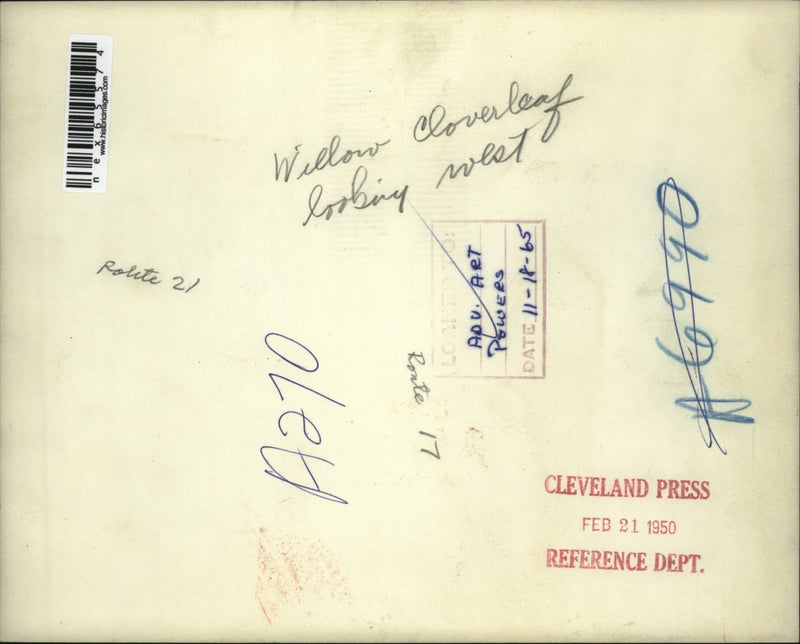 nex65574
www.historicimages.com
Willow Cloverleaf
looking west
Route 21
LOANED TO:
ADV. ART
POWERS
DATE 11-18-65
Route 17
A6990
CLEVELAND PRESS
FEB 21 1950
REFERENCE DEPT.